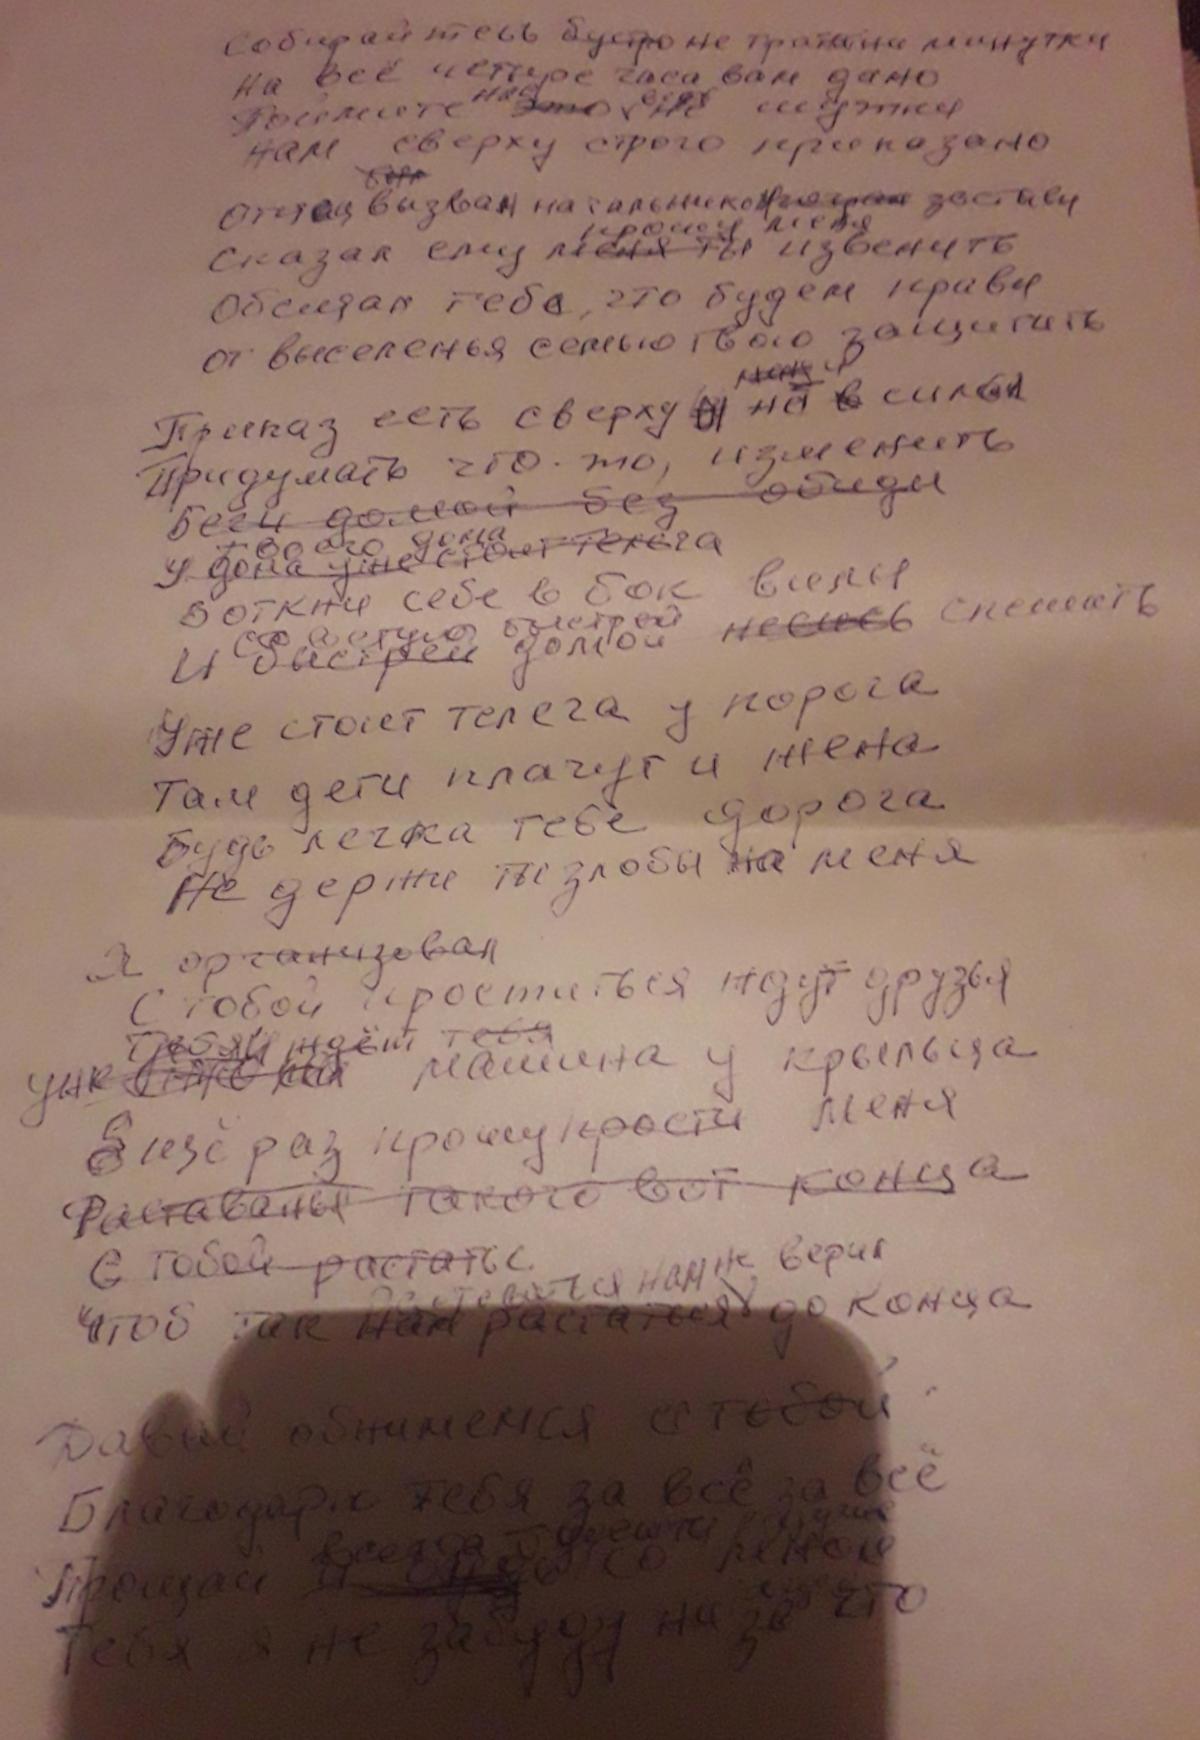 Собирайтесь быстро не тратте минутки
На всё четыре часа вам дано
Поймите нас это ведь не шутки
Нам сверху строго приказано
был
Отец вызван начальником заставы
прошу меня
Сказал ему меня ты извенить
Обещал тебе, что будем правы
от выселенья семью твою защитить
Приказ есть сверху не в силах
Придумать что-то, изменить
Беги домой без обиды
твоего дома
У дома уже стоит телега
Воткни себе в бок вилы
со быстрей
И быстрей домой несись спешить
Уже стоит телега у порога
Там дети плачут и жена
Будь легка тебе дорога
Не держи ты злобы на меня
Я организовал
С тобой проститься ждут друзья
ждёт тебя
уже машина у крыльца
Ещё раз прошу прости меня
Раставанья такого вот конца
С тобой растатьс
нам не верил
Чтоб так нам растаться до конца
Давай обнимемся с тобой
Благодарю тебя за всё за всё
всегда будешь
Прощай и со мной
Тебя я не забуду ни за что